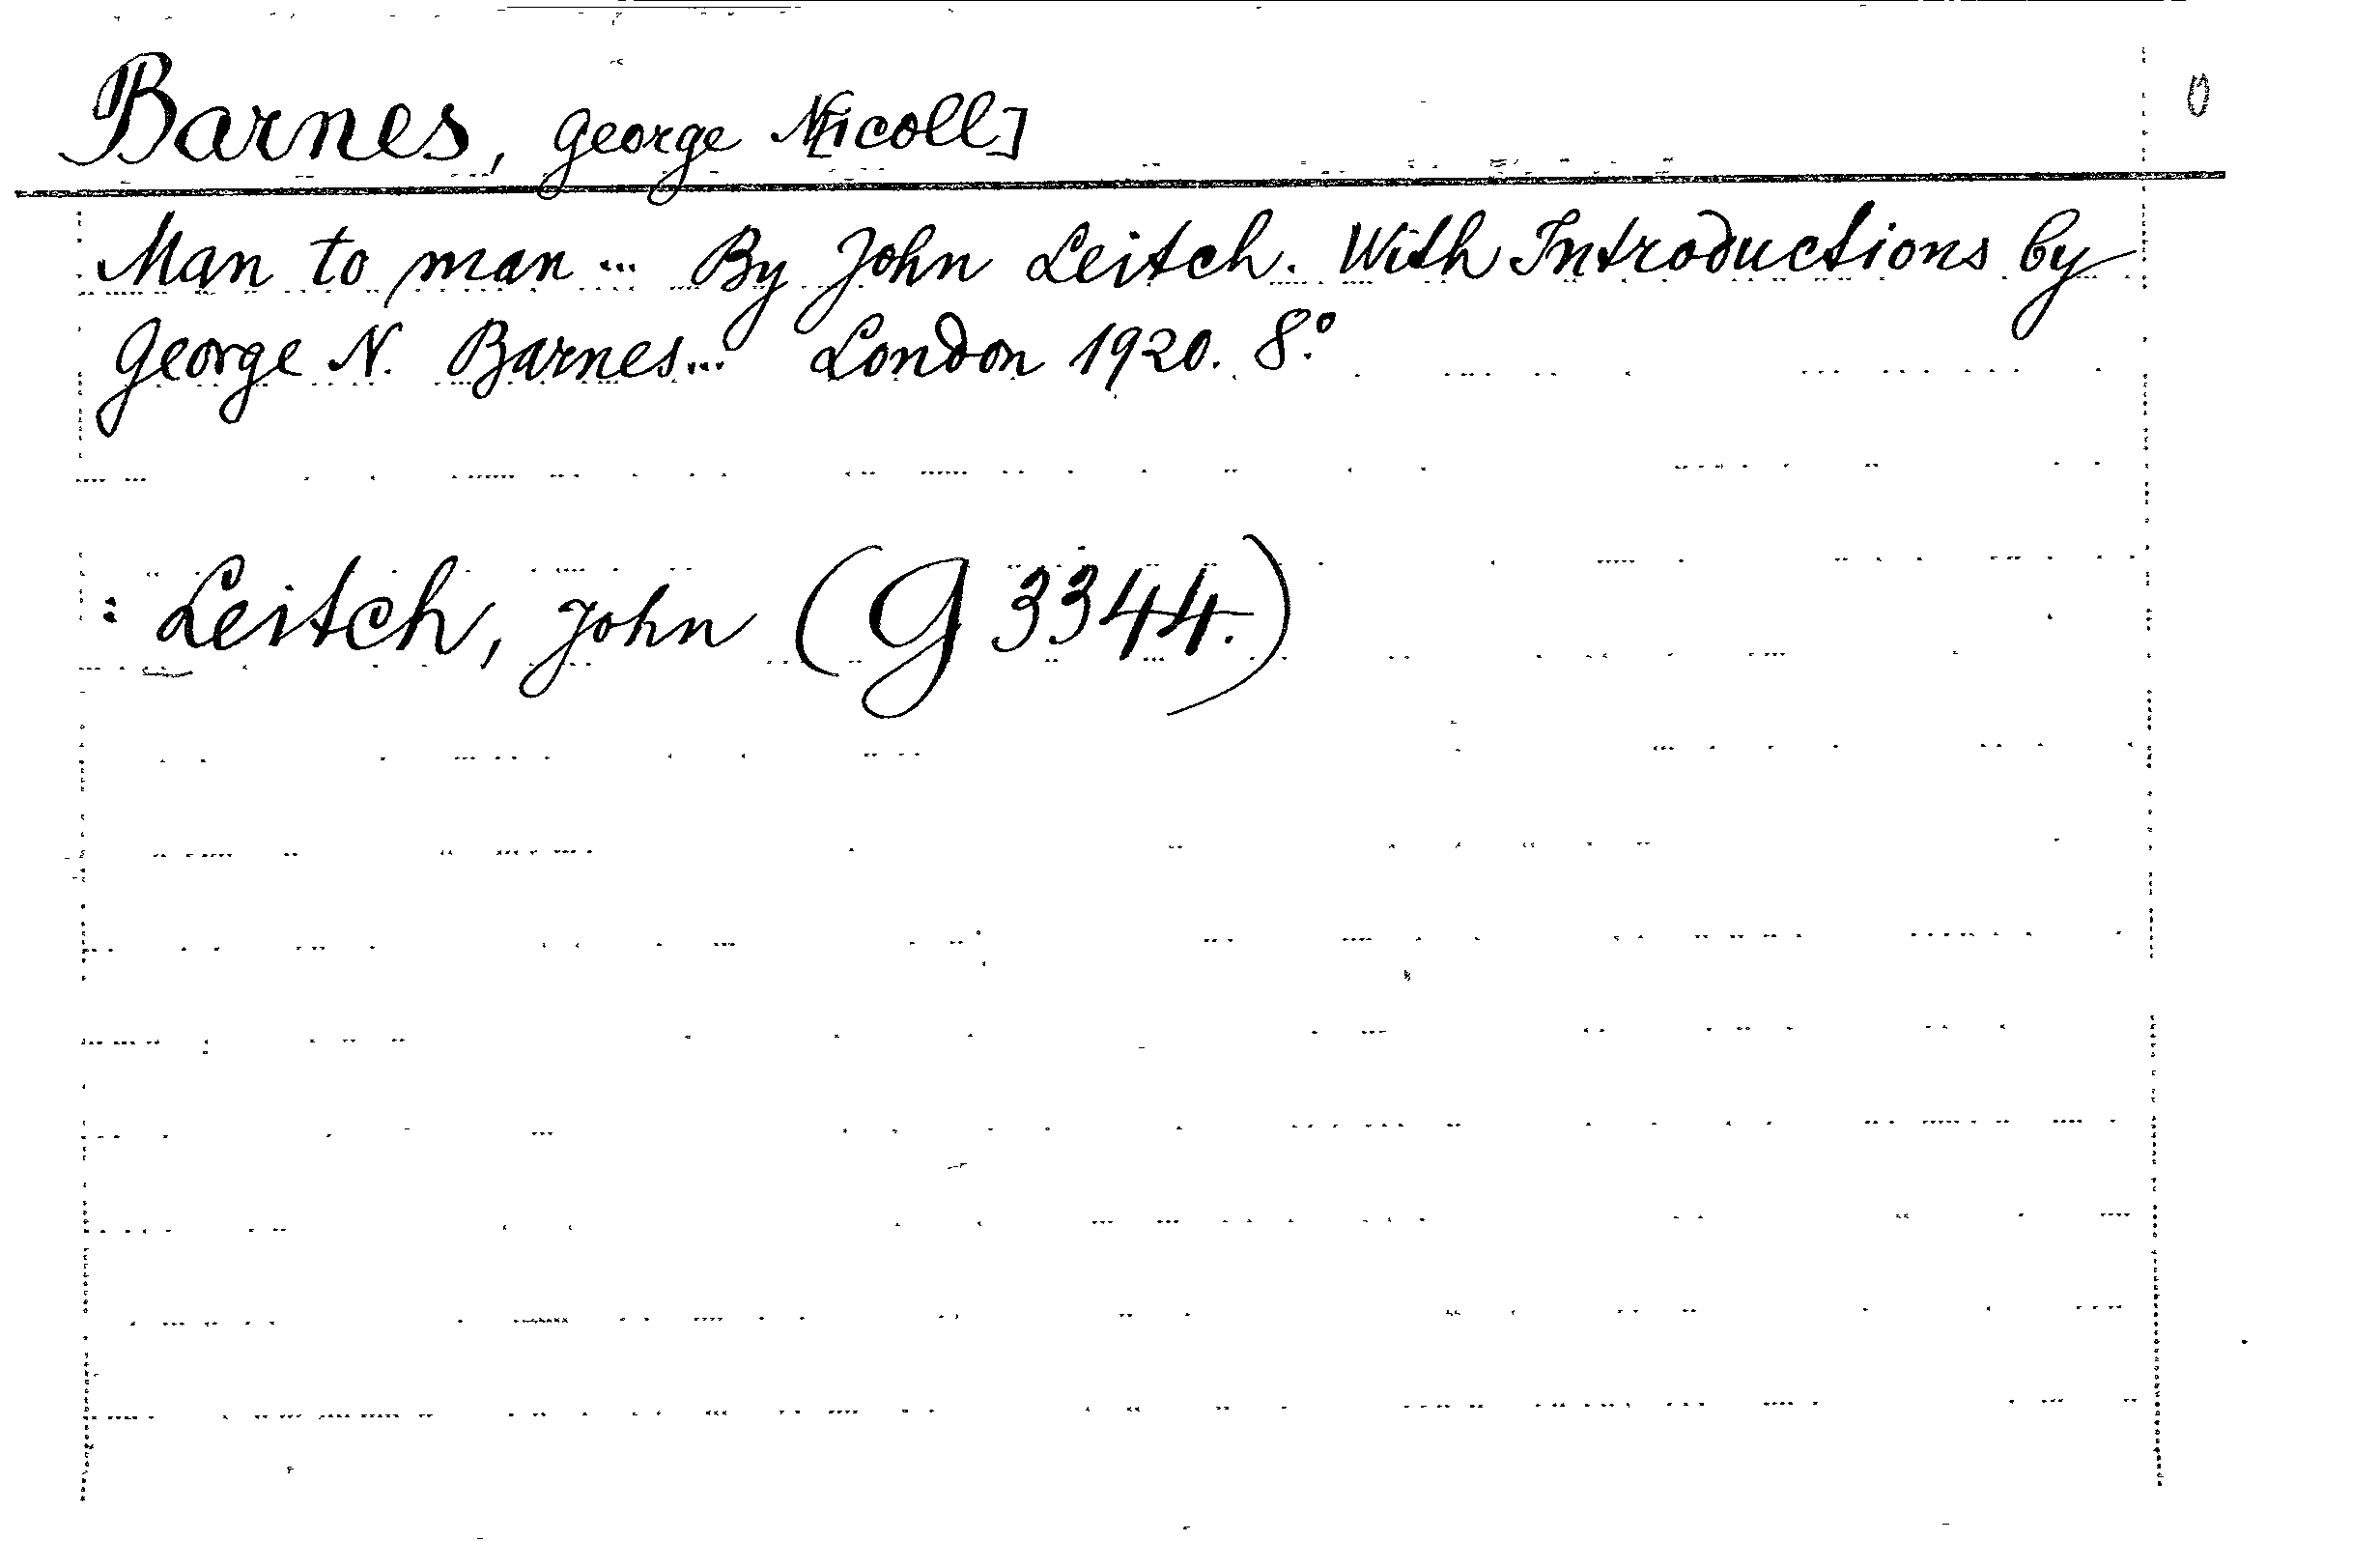 Barnes, George N[icoll]
0
Man to man ... By John Leitch. With Introductions by
George N. Barnes ... London 1920. 8.°
: Leitch, John (G 3344.)